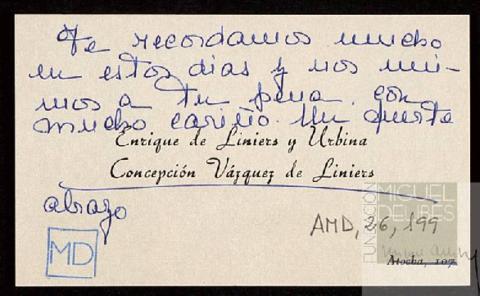 Te recordamos mucho
en estos dias y nos uni-
mos a tu pena. con
mucho cariño. Un fuerte
Enrique de Liniers y Urbina
Concepción Vázquez de Liniers
abrazo
AMD, 26, 199
MD
FUNDACIÓN
MIGUEL
DELIBES
Atocha, 107